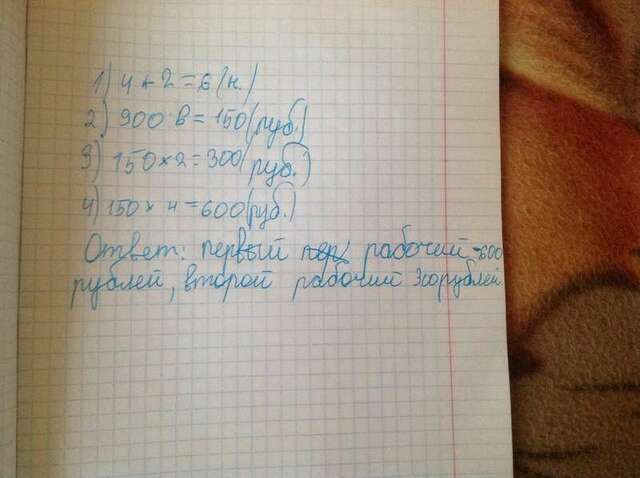 1) 4 + 2 = 6 (н.)
2) 900 : 6 = 150 (руб.)
3) 150 × 2 = 300 (руб.)
4) 150 × 4 = 600 (руб.)
Ответ: первый рабочий - 600
рублей, второй рабочий 300 рублей